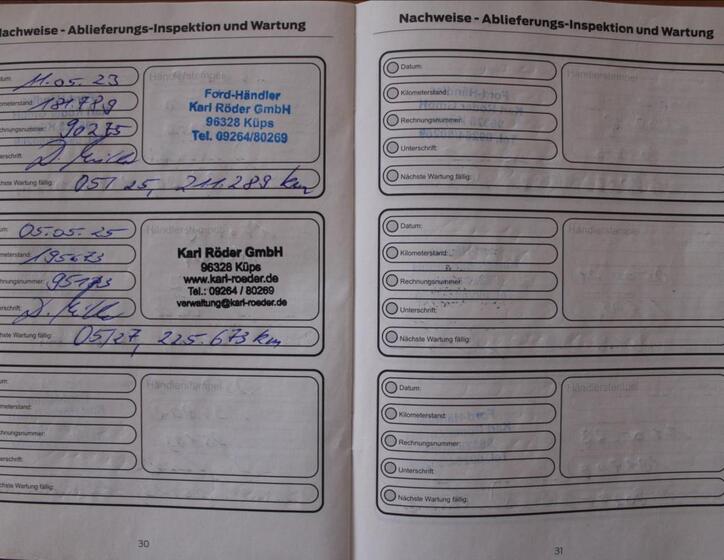 Nachweise - Ablieferungs-Inspektion und Wartung
11.05.23
Händlerstempel
Ford-Händler
Karl Röder GmbH
96328 Küps
Tel. 09264/80269
181.789
90275
Nächste Wartung fällig: 05/25, 211.289 km
05.05.25
Händlerstempel
Karl Röder GmbH
96328 Küps
www.karl-roeder.de
Tel.: 09264 / 80269
verwaltung@karl-roeder.de
195673
95173
Nächste Wartung fällig: 05/27, 225.673 km
Händlerstempel
Nächste Wartung fällig:
30
Nachweise - Ablieferungs-Inspektion und Wartung
Datum:
Händlerstempel
Kilometerstand:
Rechnungsnummer:
Unterschrift:
Nächste Wartung fällig:
Datum:
Händlerstempel
Kilometerstand:
Rechnungsnummer:
Unterschrift:
Nächste Wartung fällig:
Datum:
Händlerstempel
Kilometerstand:
Rechnungsnummer:
Unterschrift:
Nächste Wartung fällig:
31